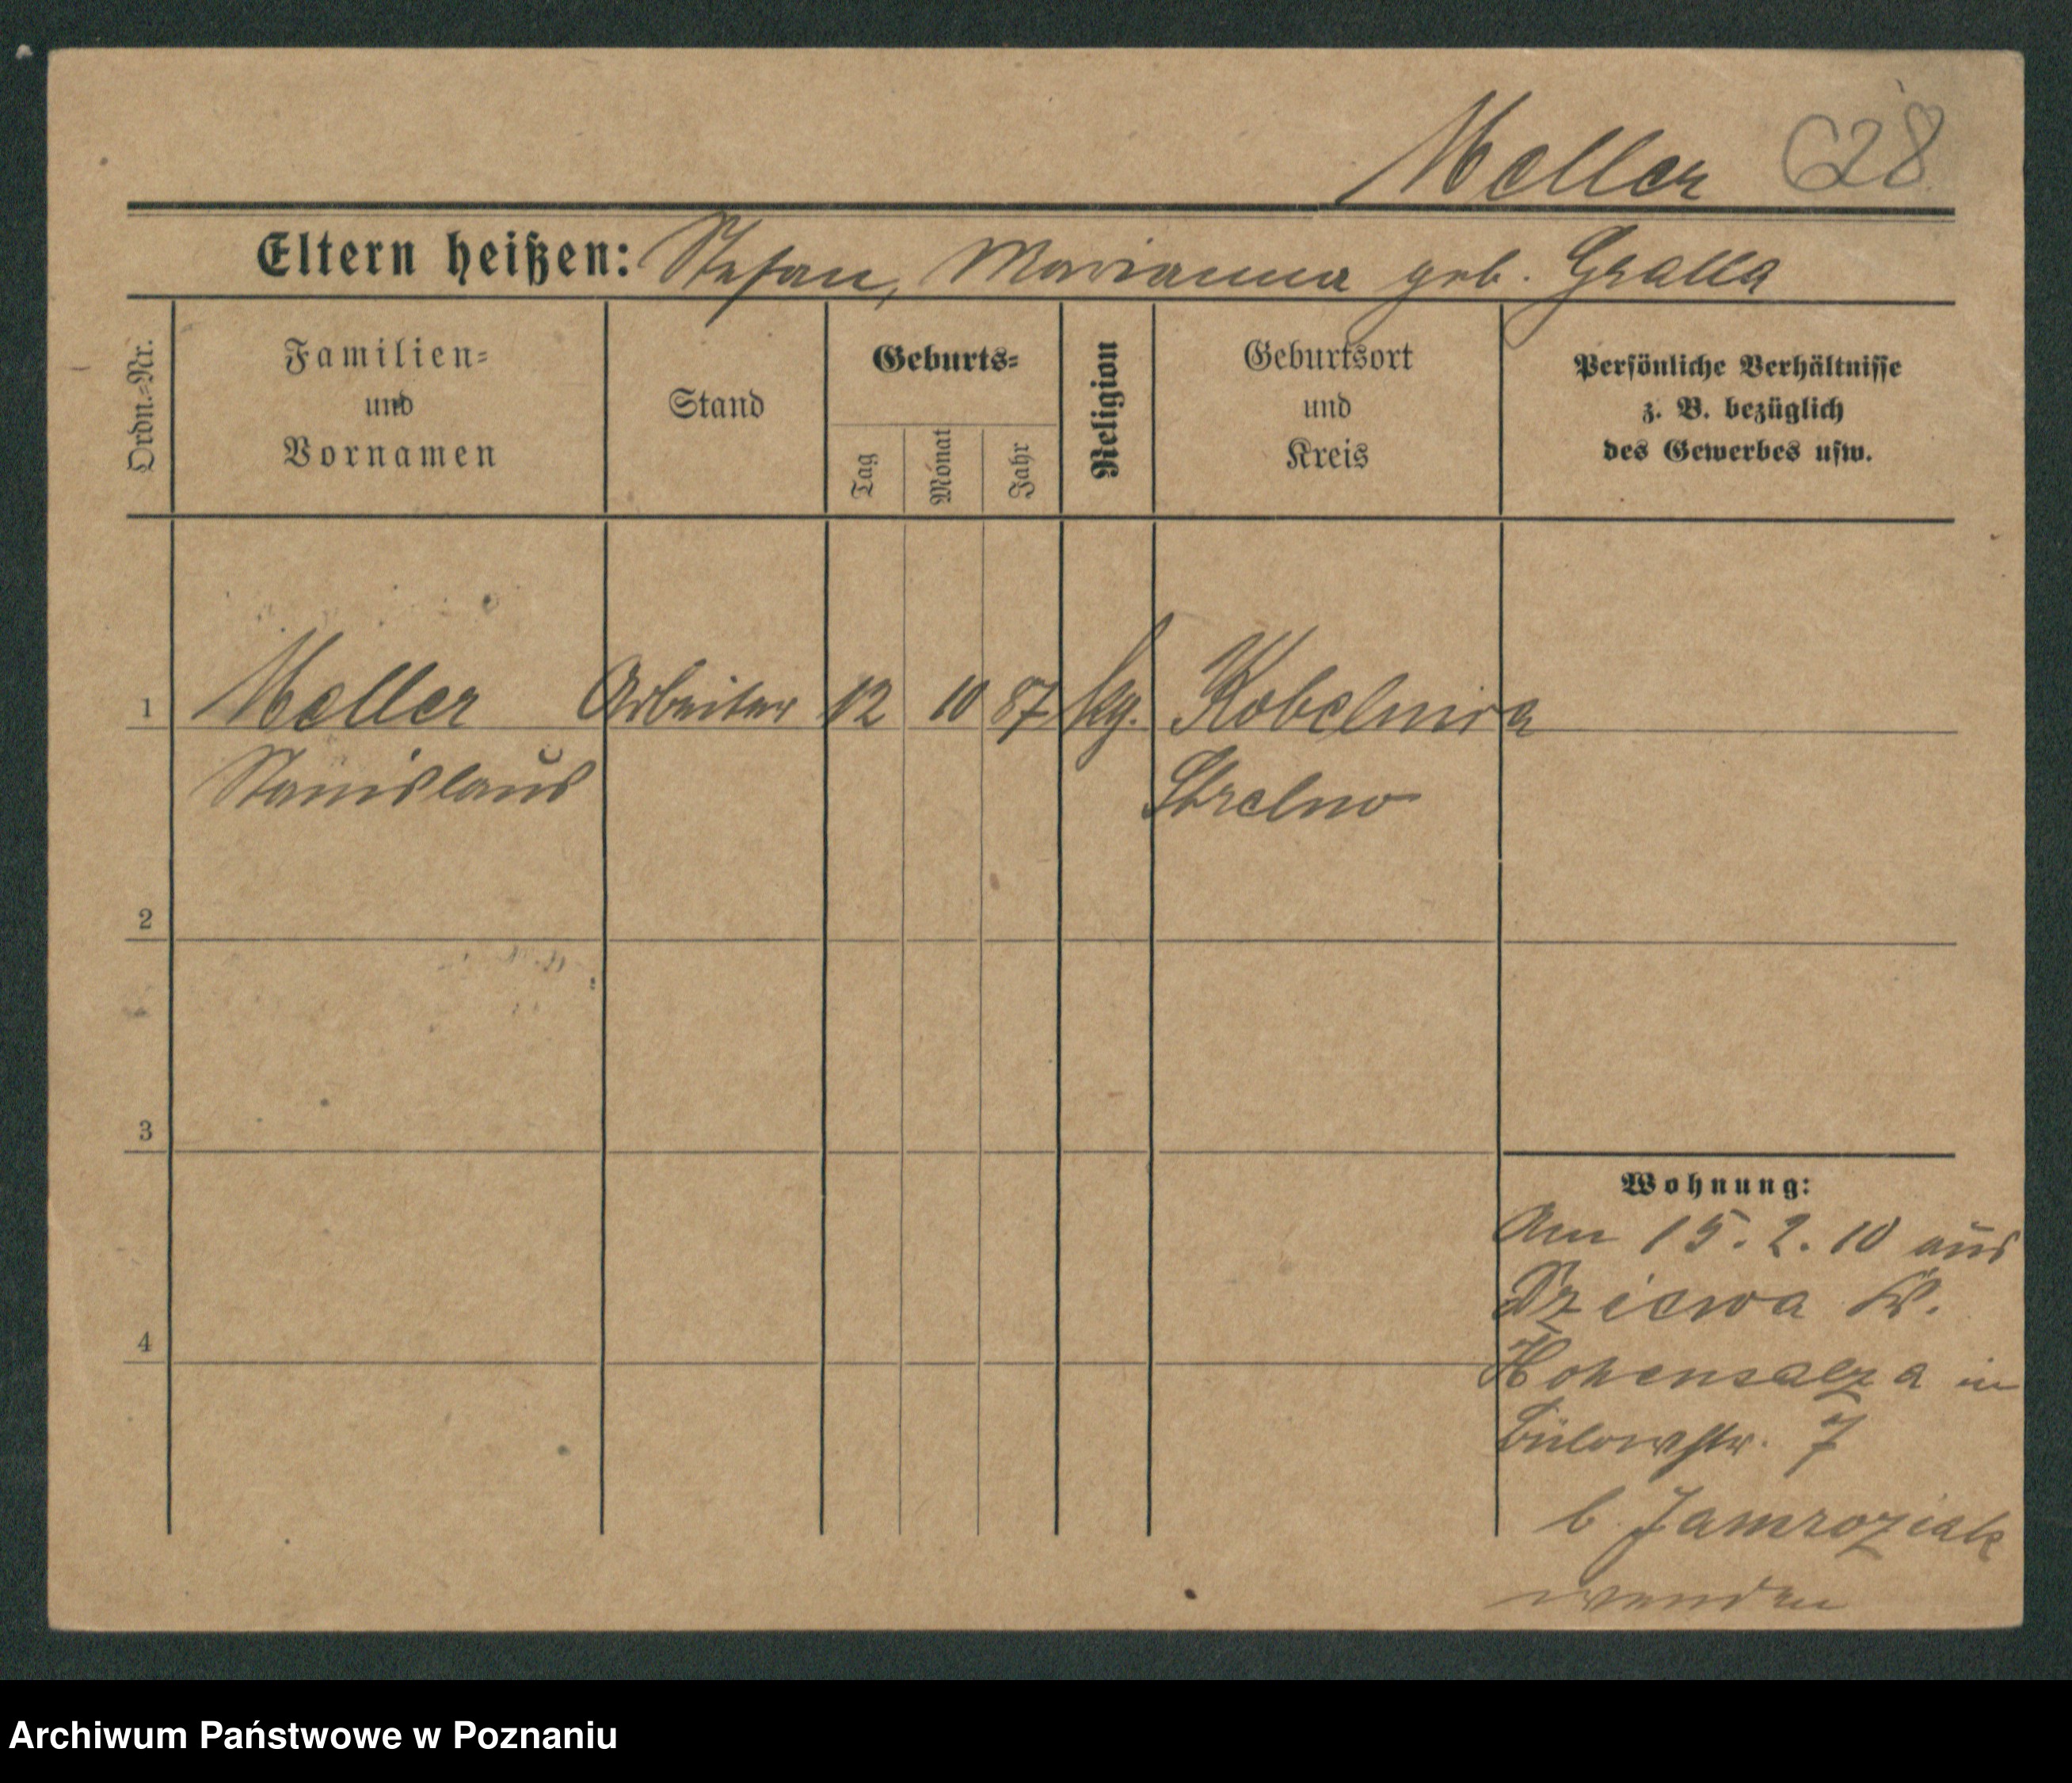 Meller 628
Eltern heißen: Stefan, Marianna geb. Gralla
Ordn.-Nr.
Familien-
und
Vornamen
Stand
Geburts-
Tag
Monat
Jahr
Religion
Geburtsort
und
Kreis
Persönliche Verhältnisse
z. B. bezüglich
des Gewerbes usw.
1 Meller Arbeiter 12 10 87 kg. Kobelnica
Stanislaus Strelno
2
3
Wohnung:
Am 15.2.10 aus
Dziewa K.
4
Hohensalza in
Bülowstr. 7
b. Jamroziak
wenden
Archiwum Państwowe w Poznaniu